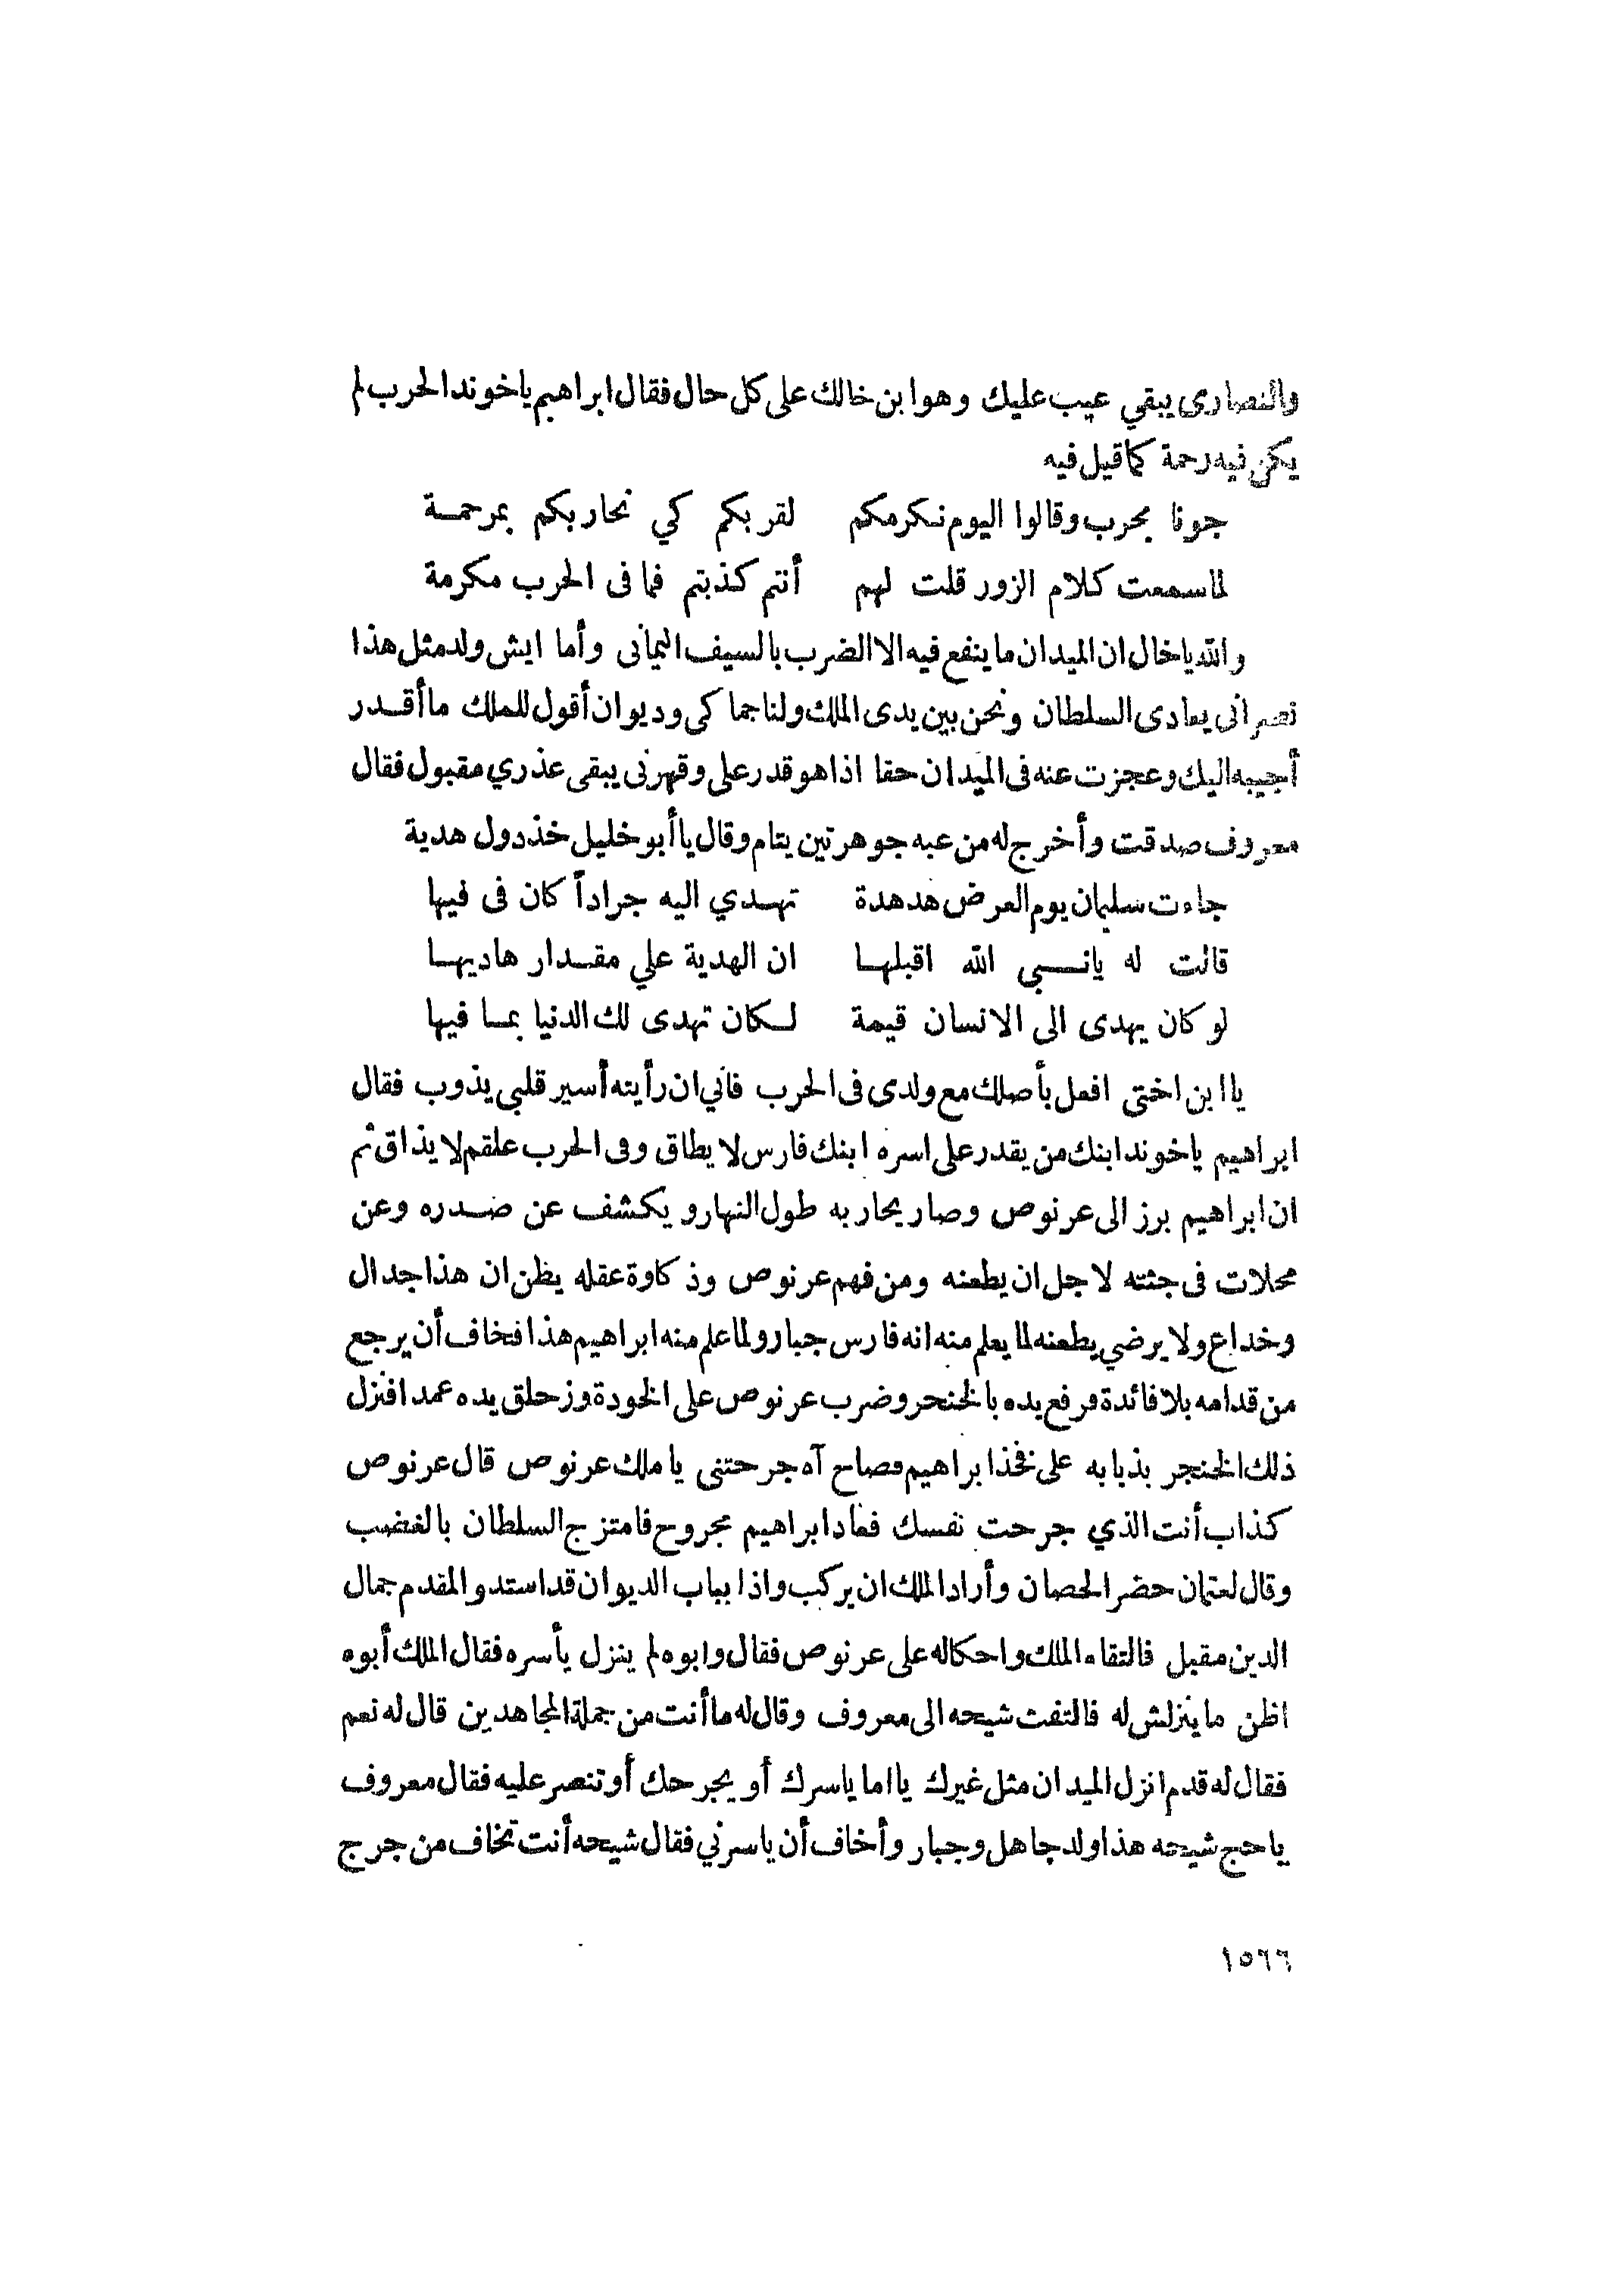 والنصارى يبقي عيب عليك وهو ابن خالك على كل حال فقال ابراهيم ياخوند الحرب لم
يكن فيه رحمة كما قيل فيه
جونا بحرب وقالوا اليوم نكرمكم لقربكم كي نحاربكم بمرحمة
لما سمعت كلام الزور قلت لهم أنتم كذبتم فما فى الحرب مكرمة
والله ياخال ان الميدان ما ينفع فيه الا الضرب بالسيف اليمانى وأما ايش ولد مثل هذا
نصرانى يعادى السلطان ونحن بين يدى الملك ولنا جماكى وديوان أقول للملك ما أقدر
أجيبه اليك وعجزت عنه فى الميدان حقا اذا هو قدر على وقهرنى يبقى عذري مقبول فقال
معروف صدقت وأخرج له من عبه جوهرتين يتام وقال يا أبو خليل خذ دول هدية
جاءت سليمان يوم العرض هدهدة تهدي اليه جراداً كان فى فيها
قالت له يا نبي الله اقبلها ان الهدية علي مقدار هاديها
لو كان يهدى الى الانسان قيمة لكان تهدى لك الدنيا بما فيها
يا ابن اختى افعل بأصلك مع ولدى فى الحرب فاني ان رأيته أسير قلبي يذوب فقال
ابراهيم ياخوند ابنك من يقدر على اسره ابنك فارس لا يطاق وفى الحرب علقم لا يذاق ثم
ان ابراهيم برز الى عرنوص وصار يحاربه طول النهار ويكشف عن صدره وعن
محلات فى جثته لاجل ان يطعنه ومن فهم عرنوص وذكاوة عقله يظن ان هذا جدال
وخداع ولا يرضي يطعنه لما يعلم منه انه فارس جبار ولما علم منه ابراهيم هذا فخاف أن يرجع
من قدامه بلا فائدة فرفع يده بالخنجر وضرب عرنوص على الخودة وزحلق يده عمدا فنزل
ذلك الخنجر بذبابه على فخذ ابراهيم فصاح آه جرحتنى يا ملك عرنوص قال عرنوص
كذاب أنت الذي جرحت نفسك فعاد ابراهيم مجروح فامتزج السلطان بالغضب
وقال لعثمان حضر الحصان وأراد الملك ان يركب واذا بباب الديوان قد استد والمقدم جمال
الدين مقبل فالتقاه الملك واحكاله على عرنوص فقال وابوه لم ينزل يأسره فقال الملك أبوه
اظن ما ينزلش له فالتفت شيحه الى معروف وقال له ما أنت من جملة المجاهدين قال له نعم
فقال له قدم انزل الميدان مثل غيرك يا اما ياسرك أو يجرحك أو تنصر عليه فقال معروف
يا حج شيحه هذا ولد جاهل وجبار وأخاف أن ياسرني فقال شيحه أنت تخاف من جرج
١٥٦٦